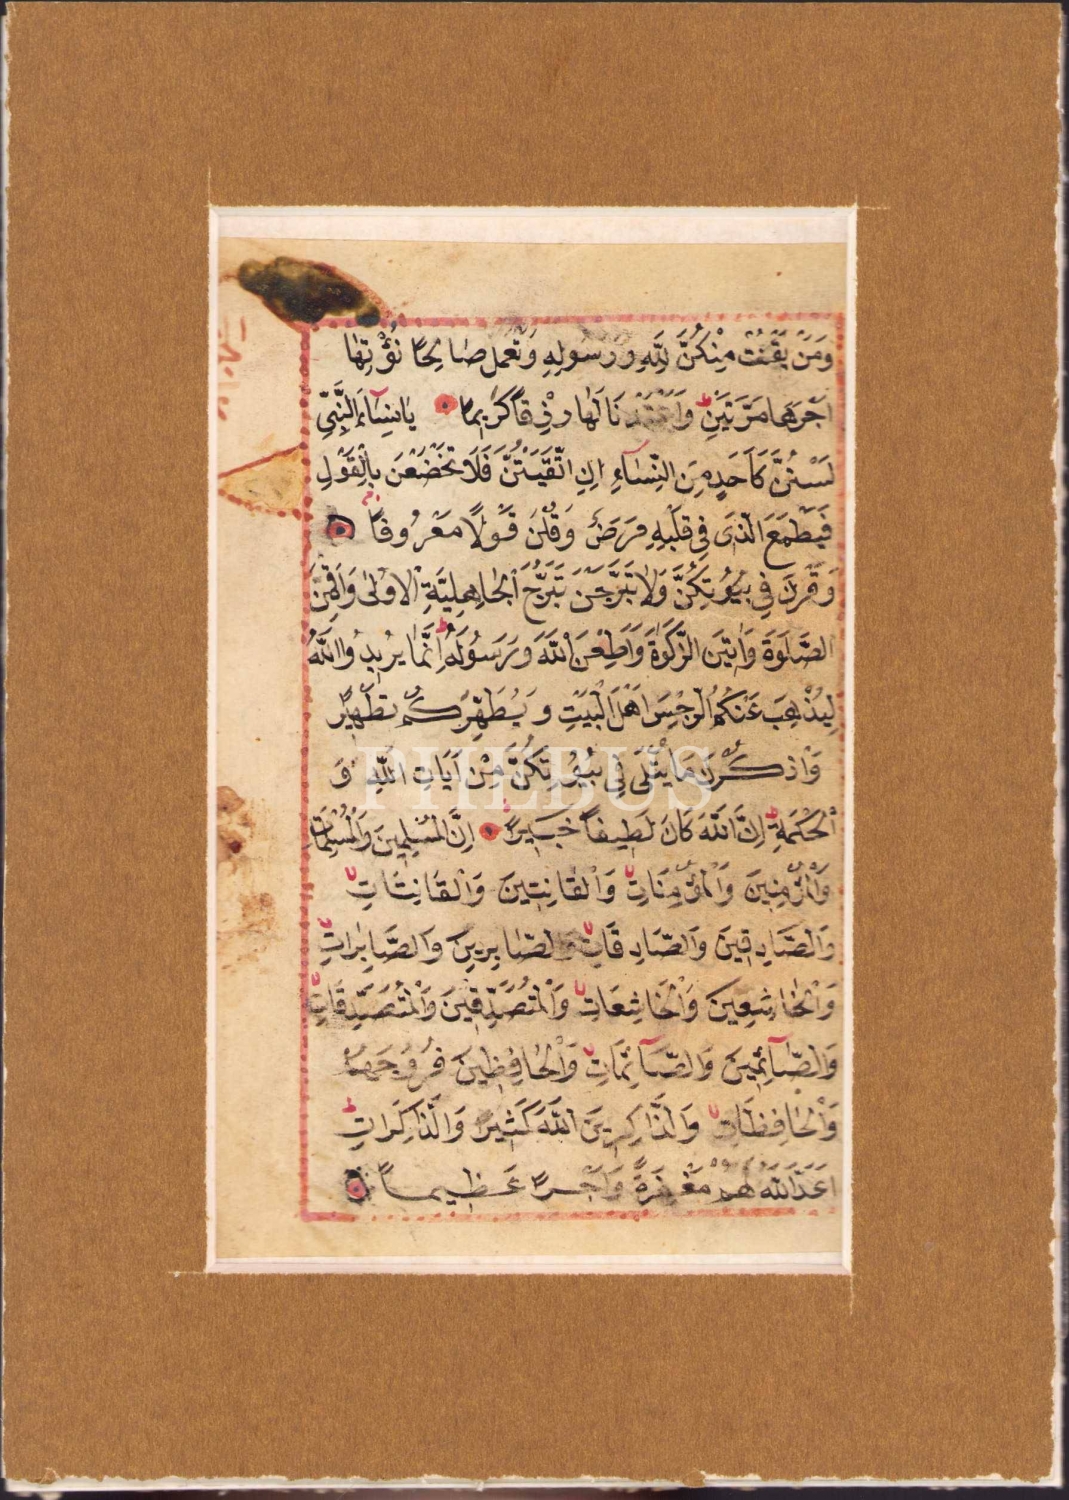 وَمَنْ يَقْنُتْ مِنْكُنَّ لِلَّهِ وَرَسُولِهِ وَتَعْمَلْ صَالِحًا نُؤْتِهَا
اَجْرَهَا مَرَّتَيْنِ وَاَعْتَدْنَا لَهَا رِزْقًا كَرِيمًا يَانِسَآءَ النَّبِيِّ
لَسْتُنَّ كَاَحَدٍ مِنَ النِّسَآءِ اِنِ اتَّقَيْتُنَّ فَلَا تَخْضَعْنَ بِالْقَوْلِ
فَيَطْمَعَ الَّذِى فِي قَلْبِهِ مَرَضٌ وَقُلْنَ قَوْلًا مَعْرُوفًا
وَقَرْنَ فِي بُيُوتِكُنَّ وَلَا تَبَرَّجْنَ تَبَرُّجَ الْجَاهِلِيَّةِ الْاُولَى وَاَقِمْنَ
الصَّلَوةَ وَاٰتِينَ الزَّكَوةَ وَاَطِعْنَ اللَّهَ وَرَسُولَهُ اِنَّمَا يُرِيدُ اللَّهُ
لِيُذْهِبَ عَنْكُمُ الرِّجْسَ اَهْلَ الْبَيْتِ وَيُطَهِّرَكُمْ تَطْهِيرًا
وَاذْكُرْنَ مَا يُتْلَى فِي بُيُوتِكُنَّ مِنْ آيَاتِ اللَّهِ وَ
الْحِكْمَةِ اِنَّ اللَّهَ كَانَ لَطِيفًا خَبِيرًا اِنَّ الْمُسْلِمِينَ وَالْمُسْلِمَاتِ
وَالْمُؤْمِنِينَ وَالْمُؤْمِنَاتِ وَالْقَانِتِينَ وَالْقَانِتَاتِ
وَالصَّادِقِينَ وَالصَّادِقَاتِ وَالصَّابِرِينَ وَالصَّابِرَاتِ
وَالْخَاشِعِينَ وَالْخَاشِعَاتِ وَالْمُتَصَدِّقِينَ وَالْمُتَصَدِّقَاتِ
وَالصَّآئِمِينَ وَالصَّآئِمَاتِ وَالْحَافِظِينَ فُرُوجَهُمْ
وَالْحَافِظَاتِ وَالذَّاكِرِينَ اللَّهَ كَثِيرًا وَالذَّاكِرَاتِ
اَعَدَّ اللَّهُ لَهُمْ مَغْفِرَةً وَاَجْرًا عَظِيمًا
PHEBUS